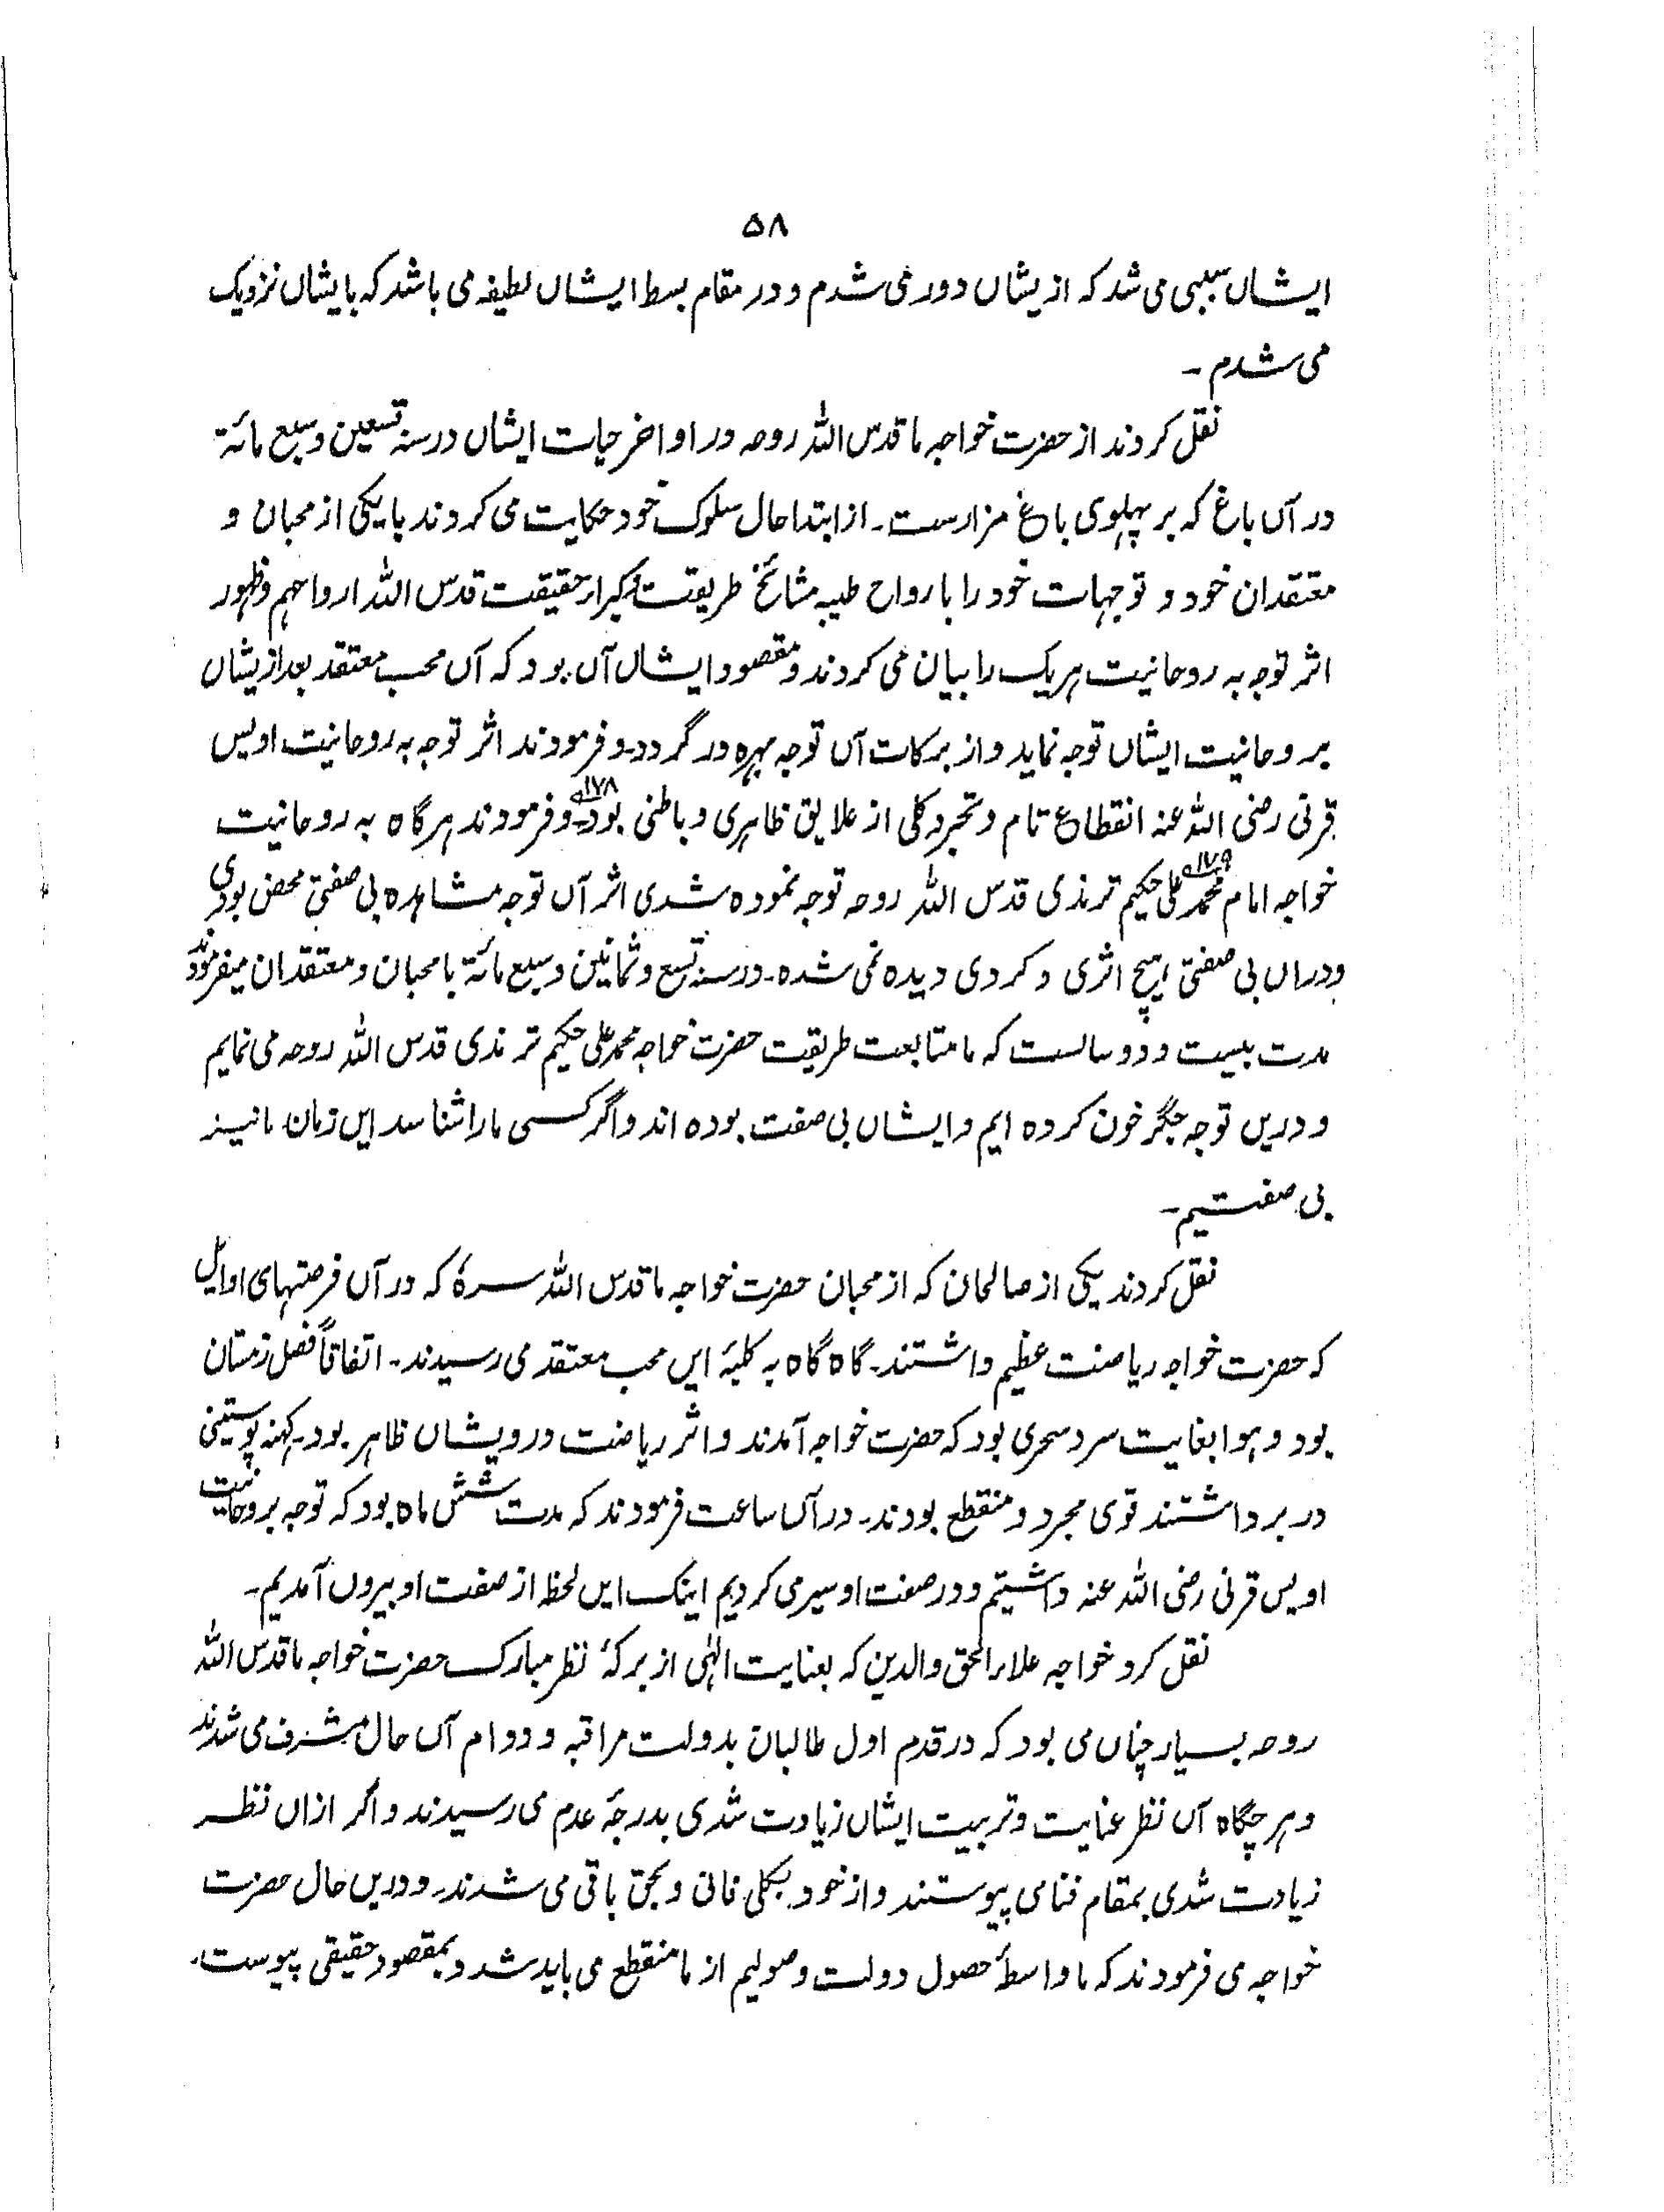 ۵۸
ایشاں سببی می شد که ازیشاں دور می شدم و در مقام بسط ایشاں لطیفه می باشد که بایشاں نزدیک
می شدم ۔
نقل کردند از حضرت خواجه ما قدس اللہ روحه در اواخر حیات ایشاں در سنه تسعین و سبع مائة
در آں باغ که بر پہلوی باغ مزارست ۔ از ابتدا حال سلوک خود حکایت می کردند با یکی از محبان و
معتقدان خود و توجہات خود را با رواح طیبه مشائخ طریقت کبرار حقیقت قدس اللہ ارواحہم و ظہور
اثر توجه به روحانیت ہر یک را بیان می کردند و مقصود ایشاں آں بود که آں محب معتقد بعد ازیشاں
بروحانیت ایشاں توجه نماید و از برکات آں توجه بہره ور گردد ۔ و فرمودند اثر توجه به روحانیت اویس
قرنی رضی اللہ عنه انقطاع تام و تجرد کلی از علایق ظاہری و باطنی بود ۱۷۸؎ ۔ و فرمودند ہرگاه به روحانیت
خواجه امام محمد علی ۱۷۹؎ حکیم ترمذی قدس اللہ روحه توجه نموده شدی اثر آں توجه مشاہره بی صفتی محض بودی
و دراں بی صفتی ہیچ اثری و گردی دیده نمی شده ۔ در سنه تسع و ثمانین و سبع مائة با محبان و معتقدان میفرمودند
مدت بیست و دو سالست که ما متابعت طریقت حضرت خواجه محمد علی حکیم ترمذی قدس اللہ روحه می نمایم
و دریں توجه جگر خون کرده ایم و ایشاں بی صفت بوده اند و اگر کسی ما را شناسد ایں زمان ما نیز
بی صفتیم ۔
نقل کردند یکی از صالحان که از محبان حضرت خواجه ما قدس اللہ سرهٗ که در آں فرصتہای اوایل
که حضرت خواجه ریاضت عظیم داشتند ۔ گاه گاه به کلبهٔ ایں محب معتقد می رسیدند ۔ اتفاقاً فصل زمستان
بود و ہوا بغایت سرد سحری بود که حضرت خواجه آمدند و اثر ریاضت درویشاں ظاہر بود ۔ کہنه پوستینی
در بر داشتند قوی مجرد و منقطع بودند ۔ در آں ساعت فرمودند که مدت شش ماه بود که توجه بروحانیت
اویس قرنی رضی اللہ عنه داشتیم و در صفت او سیر می کردیم اینک ایں لحظه از صفت او بیروں آمدیم ۔
نقل کرد خواجه علاء الحق والدین که بعنایت الٰہی از برکهٔ نظر مبارک حضرت خواجه ما قدس اللہ
روحه بسیار چناں می بود که در قدم اول طالبان بدولت مراقبه و دوام آں حال مشرف می شدند
و ہر چگاه آں نظر عنایت و تربیت ایشاں زیادت شدی بدرجهٔ عدم می رسیدند و اگر ازاں نظر
زیادت شدی بمقام فنا می پیوستند و از خود بکلی فانی و بحق باقی می شدند ۔ و دریں حال حضرت
خواجه می فرمودند که ما واسطهٔ حصول دولت وصولیم از ما منقطع می باید شد و بمقصود حقیقی پیوست ۔